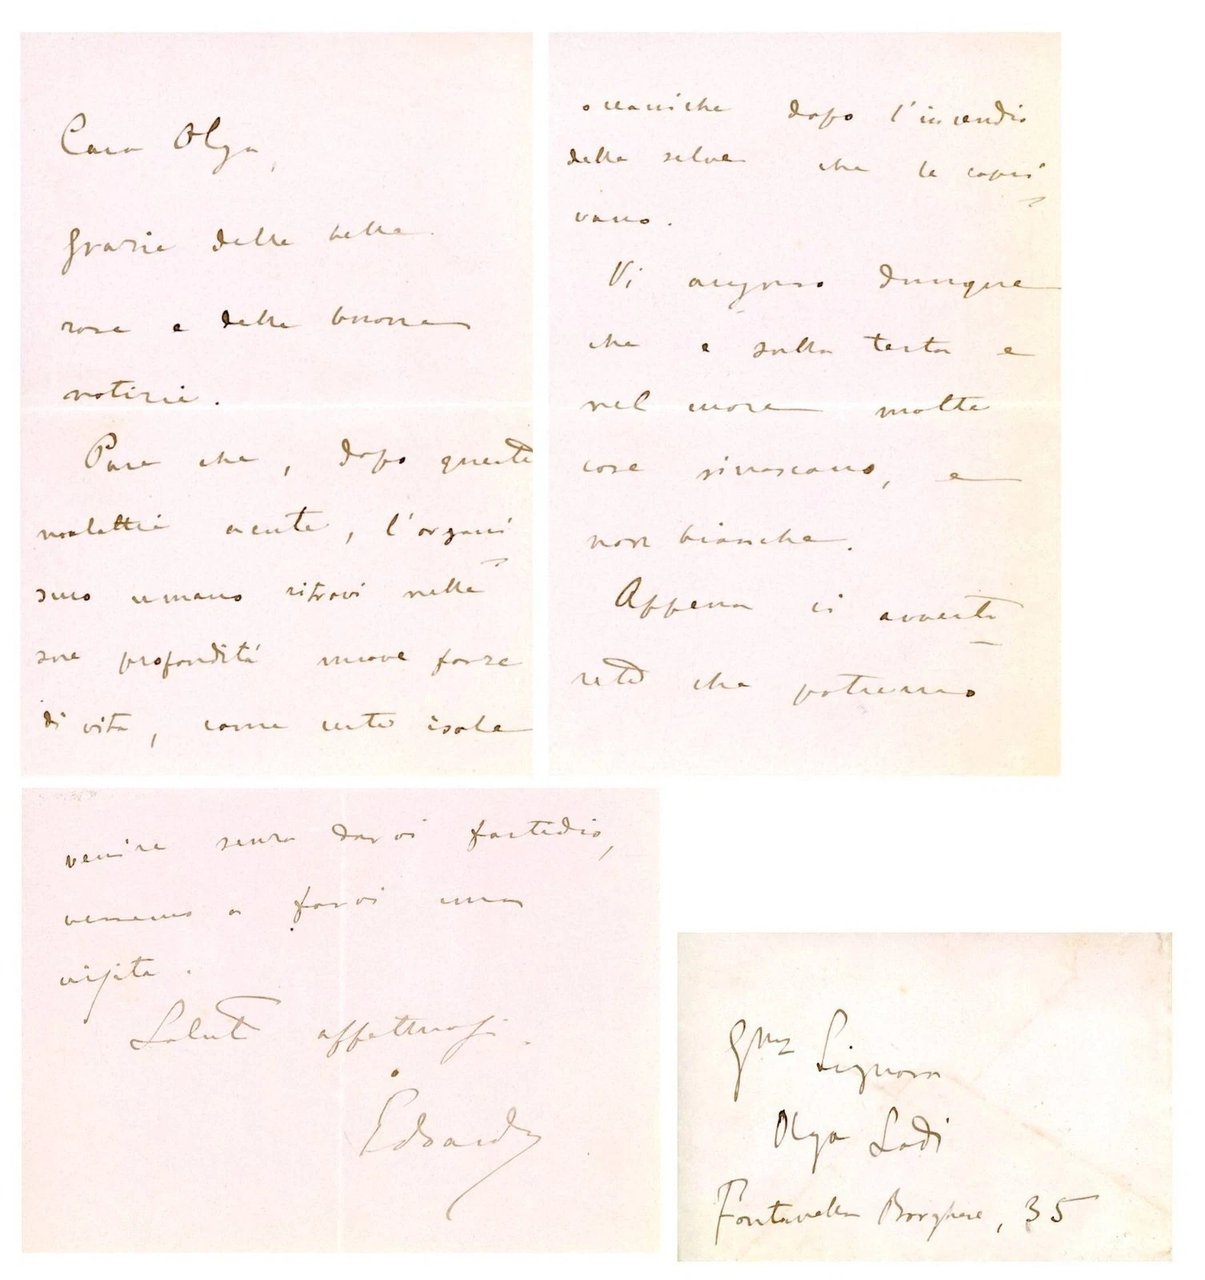 Cara Olga,
Grazie delle belle
rose e delle buone
notizie.
Pare che, dopo queste
malattie acute, l'organi
smo umano ritrovi nelle
sue profondità nuove forze
di vita, come certe isole
oceaniche dopo l'incendio
delle selve che le copri
vano.
Vi auguro dunque
che e sulla testa e
nel cuore molte
cose rinascano, e
non bianche.
Appena ci avverti
rete che potremo
venire senza darvi fastidio,
verremo a farvi una
visita.
Saluti affettuosi.
Edoardo
Gma Signora
Olga Lodi
Fontanella Borghese, 35